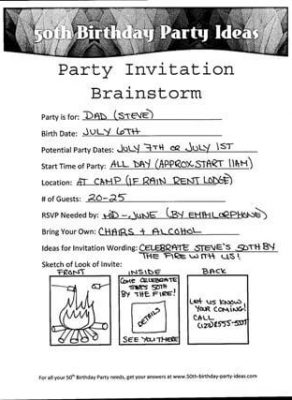 50th Birthday Party Ideas
Party Invitation
Brainstorm
Party is for: DAD (STEVE)
Birth Date: JULY 6TH
Potential Party Dates: JULY 7TH OR JULY 1ST
Start Time of Party: ALL DAY (APPROX START 11AM)
Location: AT CAMP (IF RAIN RENT LODGE)
# of Guests: 20-25
RSVP Needed by: MID-JUNE (BY EMAIL OR PHONE)
Bring Your Own: CHAIRS + ALCOHOL
Ideas for Invitation Wording: CELEBRATE STEVE'S 50TH BY
THE FIRE WITH US!
Sketch of Look of Invite:
FRONT
INSIDE
COME CELEBRATE
STEVE'S 50TH
BY THE FIRE!
DETAILS
SEE YOU THERE!
BACK
LET US KNOW
YOUR COMING!
CALL
For all your 50th Birthday Party needs, get your answers at www.50th-birthday-party-ideas.com